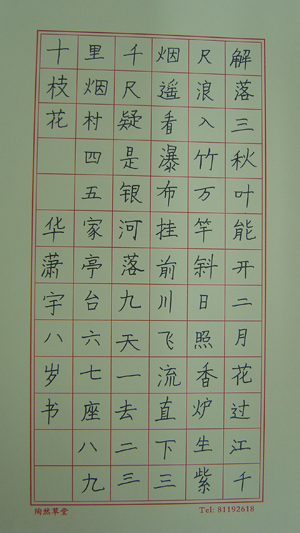 解落三秋叶能开二月花过江千
尺浪入竹万竿斜日照香炉生紫
烟遥看瀑布挂前川飞流直下三
千尺疑是银河落九天一去二三
里烟村四五家亭台六七座八九
十枝花 华萧宇八岁书
陶然草堂 Tel: 81192618